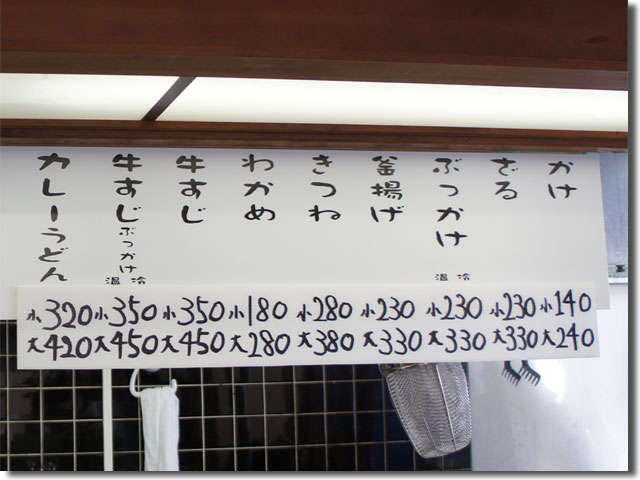 かけ
ざる
ぶっかけ 温 冷
釜揚げ
きつね
わかめ
牛すじ
牛すじぶっかけ 温 冷
カレーうどん
小320 小350 小350 小180 小280 小230 小230 小230 小140
大420 大450 大450 大280 大380 大330 大330 大330 大240